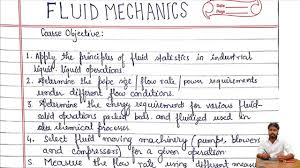 FLUID MECHANICS
Date
Page
Course Objective:
1. Apply the principles of fluid statistics in industrial
liquid-liquid operations
2. Determine the pipe size / flow rate / power requirements
under different flow conditions.
3. Determine the energy requirement for various fluid-
solid operations packed bed, and fluidized used in
chemical processes
4. Select fluid moving machinery (pumps, blowers
and compressors) for a given operation
5. Measure the flow rate using different